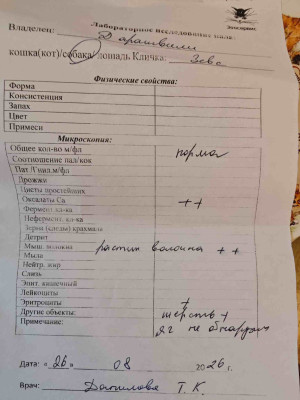 Лабораторное исследование кала:
Владелец:
кошка(кот)/собака/лошадь Кличка: Зевс
Физические свойства:
Форма
Консистенция
Запах
Цвет
Примеси
Микроскопия:
Общее кол-во м/фл норма
Соотношение пал/кок
Дрожжи
Цисты простейших
Оксалаты Са ++
Фермент. кл-ка
Нефермент. кл-ка
Зерна (следы) крахмала
Детрит
Мыш. волокна растит волокна ++
Мыла
Нейтр. жир
Слизь
Эпит. кишечный
Лейкоциты
Эритроциты +
Другие объекты: шерсть +
Примечание: я г не обнаруж
Дата: «26» 08 2026 г.
Врач: Данилова Т. К.